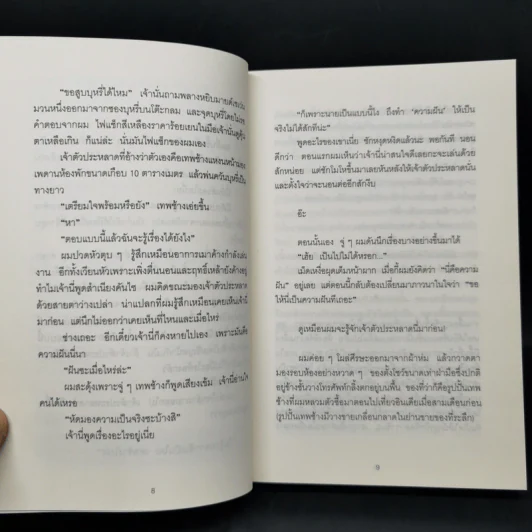 "ขอสูบบุหรี่ได้ไหม" เจ้านั่นถามพลางหยิบมายด์เซเว่น
มวนหนึ่งออกมาจากซองบุหรี่บนโต๊ะกลม และจุดบุหรี่โดยไม่รอ
คำตอบจากผม ไฟแช็กสีเหลืองราคาร้อยเยนในมือเจ้านั่นดูคุ้น
ตาเหลือเกิน ก็แน่ล่ะ นั่นมันไฟแช็กของผมเอง
เจ้าตัวประหลาดที่อ้างว่าตัวเองคือเทพช้างแหงนหน้ามอง
เพดานห้องพักขนาดเกือบ 10 ตารางเมตร แล้วพ่นควันบุหรี่เป็น
ทางยาว
"เตรียมใจพร้อมหรือยัง" เทพช้างเอ่ยขึ้น
"หา"
"ตอบแบบนี้แล้วฉันจะรู้เรื่องได้ยังไง"
ผมปวดหัวตุบ ๆ รู้สึกเหมือนอาการเมาค้างกำลังเล่น
งาน อีกทั้งเวียนหัวเพราะเพิ่งตื่นนอนและฤทธิ์เหล้ายังค้างอยู่
ทำไมเจ้านี่พูดสำเนียงคันไซ ผมคิดขณะมองเจ้าตัวประหลาด
ด้วยสายตาว่างเปล่า น่าแปลกที่ผมรู้สึกเหมือนเคยเห็นเจ้านี่
มาก่อน แต่นึกไม่ออกว่าเคยเห็นที่ไหนและเมื่อไหร่
ช่างเถอะ อีกเดี๋ยวเจ้านี่ก็คงหายไปเอง เพราะมันคือ
ความฝันนี่นา
"ฝันซะเมื่อไหร่ล่ะ"
ผมสะดุ้งเพราะจู่ ๆ เทพช้างก็พูดเสียงเข้ม เจ้านี่อ่านใจ
คนได้เหรอ
"หัดมองความเป็นจริงซะบ้างสิ"
เจ้านี่พูดเรื่องอะไรอยู่เนี่ย
8
"ก็เพราะนายเป็นแบบนี้ไง ถึงทำ 'ความฝัน' ให้เป็น
จริงไม่ได้สักทีน่ะ"
พูดอะไรของเขาเนี่ย ชักหงุดหงิดแล้วนะ พอกันที นอน
ดีกว่า ตอนแรกผมเห็นว่าเจ้านี่น่าสนใจดีเลยกะจะเล่นด้วย
สักหน่อย แต่ชักไม่ไหวขึ้นมาเลยหันหลังให้เจ้าตัวประหลาดนั่น
และตั้งใจว่าจะนอนต่ออีกสักงีบ
อ๊ะ
ตอนนั้นเอง จู่ ๆ ผมดันนึกเรื่องบางอย่างขึ้นมาได้
"เฮ้ย เป็นไปไม่ได้หรอก..."
เม็ดเหงื่อผุดเต็มหน้าผาก เมื่อกี้ผมยังคิดว่า "นี่คือความ
ฝัน" อยู่เลย แต่ตอนนี้กลับต้องเปลี่ยนมาภาวนาในใจว่า "ขอ
ให้นี่เป็นความฝันทีเถอะ"
ดูเหมือนผมจะรู้จักเจ้าตัวประหลาดนี่มาก่อน!
ผมค่อย ๆ โผล่ศีรษะออกมาจากผ้าห่ม แล้วกวาดตา
มองรอบห้องอย่างหวาด ๆ ของตั้งโชว์ขนาดเท่าฝ่ามือซึ่งปกติ
อยู่ข้างชั้นวางโทรศัพท์กลิ้งตกอยู่บนพื้น ของที่ว่าก็คือรูปปั้นเทพ
ช้างที่ผมหลวมตัวซื้อมาตอนไปเที่ยวอินเดียเมื่อสามเดือนก่อน
(รูปปั้นเทพช้างมีวางขายเกลื่อนกลาดในย่านขายของที่ระลึก)
9